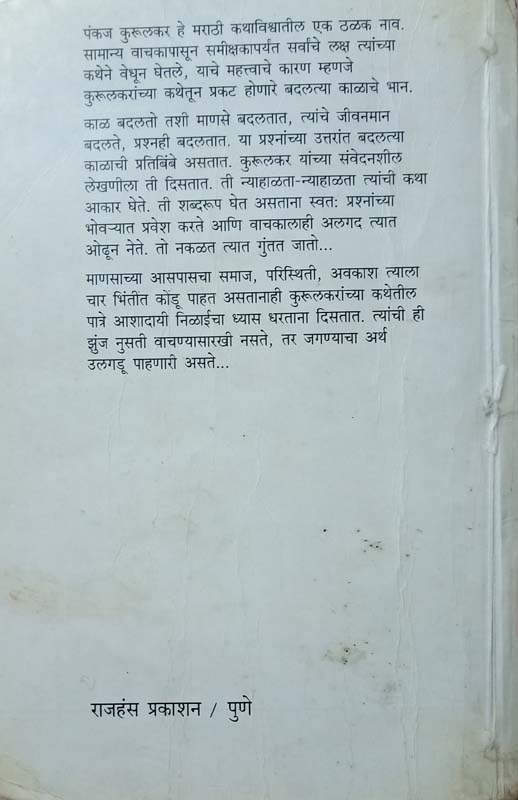 पंकज कुरूलकर हे मराठी कथाविश्वातील एक ठळक नाव.
सामान्य वाचकापासून समीक्षकापर्यंत सर्वांचे लक्ष त्यांच्या
कथेने वेधून घेतले, याचे महत्त्वाचे कारण म्हणजे
कुरूलकरांच्या कथेतून प्रकट होणारे बदलत्या काळाचे भान.
काळ बदलतो तशी माणसे बदलतात, त्यांचे जीवनमान
बदलते, प्रश्नही बदलतात. या प्रश्नांच्या उत्तरांत बदलत्या
काळाची प्रतिबिंबे असतात. कुरूलकर यांच्या संवेदनशील
लेखणीला ती दिसतात. ती न्याहाळता-न्याहाळता त्यांची कथा
आकार घेते. ती शब्दरूप घेत असताना स्वतः प्रश्नांच्या
भोवऱ्यात प्रवेश करते आणि वाचकालाही अलगद त्यात
ओढून नेते. तो नकळत त्यात गुंतत जातो...
माणसाच्या आसपासचा समाज, परिस्थिती, अवकाश त्याला
चार भिंतींत कोंडू पाहत असतानाही कुरूलकरांच्या कथेतील
पात्रे आशादायी निळाईचा ध्यास धरताना दिसतात. त्यांची ही
झुंज नुसती वाचण्यासारखी नसते, तर जगण्याचा अर्थ
उलगडू पाहणारी असते...
राजहंस प्रकाशन / पुणे